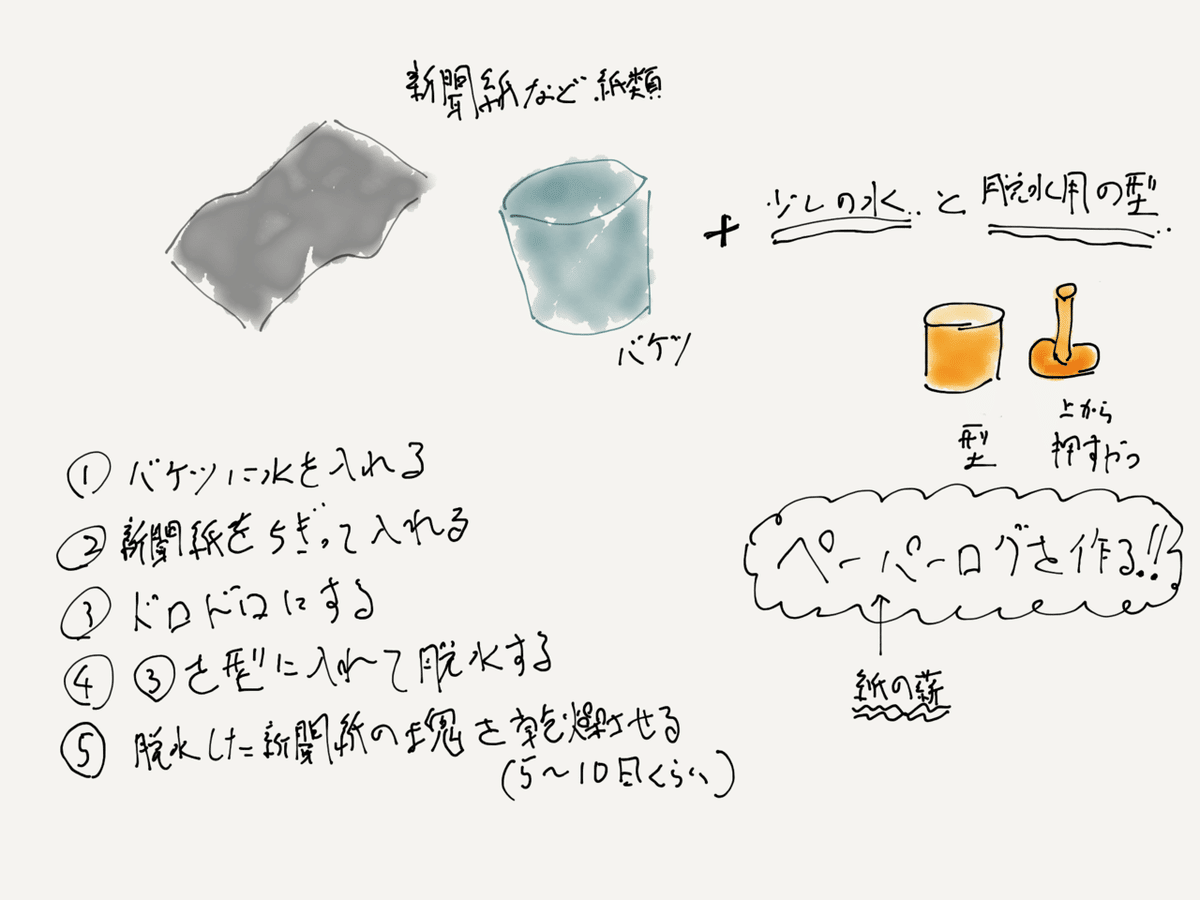 新聞紙など紙類
バケツ
+ 少しの水 と 脱水用の型
型
上から
押すやつ
ペーパーログを作る!!
紙の薪
① バケツに水を入れる
② 新聞紙をちぎって入れる
③ ドロドロにする
④ ③を型に入れて脱水する
⑤ 脱水した新聞紙の塊を乾燥させる
(5〜10日くらい)